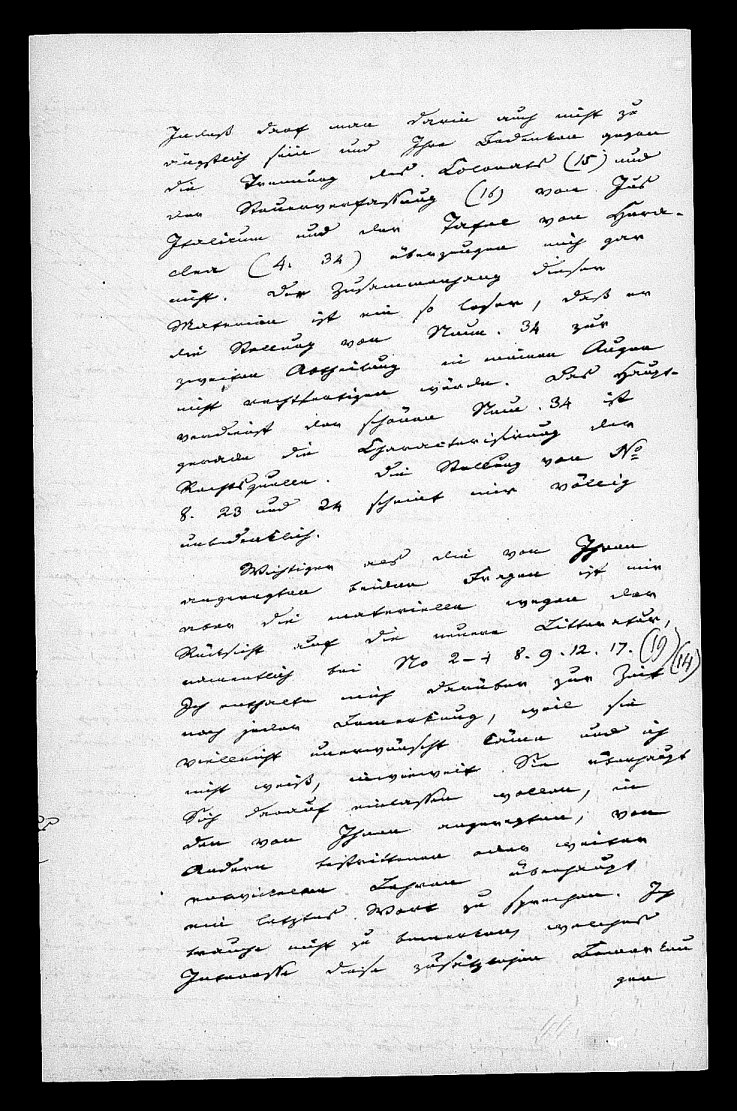 Indeß darf man darin auch nicht zu
ängstlich sein und Ihre Bedenken gegen
die Trennung des Colonats (15) und
der Steuerverfassung (16) von Jus
Italicum und der Tafel von Hera-
clea (4. 34) überzeugen mich gar
nicht. Der Zusammenhang dieser
Materien ist ein so loser, daß er
die Stellung von Num. 34 zur
zweiten Abtheilung in meinen Augen
nicht rechtfertigen würde. Das Haupt-
verdienst der schönen Num. 34 ist
gerade die Characterisirung der
Rechtsquellen. Die Stellung von No
8. 23 und 24 scheint mir völlig
unbedenklich.
Wichtiger als die von Ihnen
angeregten beiden Fragen ist mir
aber die materielle wegen der
Rücksicht auf die neuere Litteratur,
namentlich bei No 2-4 8. 9. 12. 17. (19) (14)
Ich enthalte mich darüber zur Zeit
noch jeder Bemerkung, weil sie
vielleicht unerwünscht käme und ich
nicht weiß, inwieweit Sie überhaupt
Sich darauf einlassen wollen, in
den von Ihnen angeregten, von
Andern bestrittenen oder weiter
entwickelten Lehren überhaupt
ein letztes Wort zu sprechen. Ich
brauche nicht zu bemerken, welches
Interesse diese zusätzlichen Bemerkun
gen